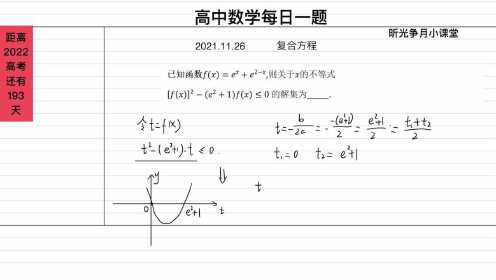 高中数学每日一题
昕光争月小课堂
距离
2022
高考
还有
193
天
2021.11.26 复合方程
已知函数f(x) = e^x + e^{2-x},则关于x的不等式
[f(x)]² − (e² + 1)f(x) ≤ 0 的解集为_____.
令t=f(x)
t²-(e²+1)·t ≤ 0.
t=-b/2a = -(-(e²+1))/2 = (e²+1)/2 = (t₁+t₂)/2
t₁=0 t₂=e²+1
y
t
0 e²+1 t